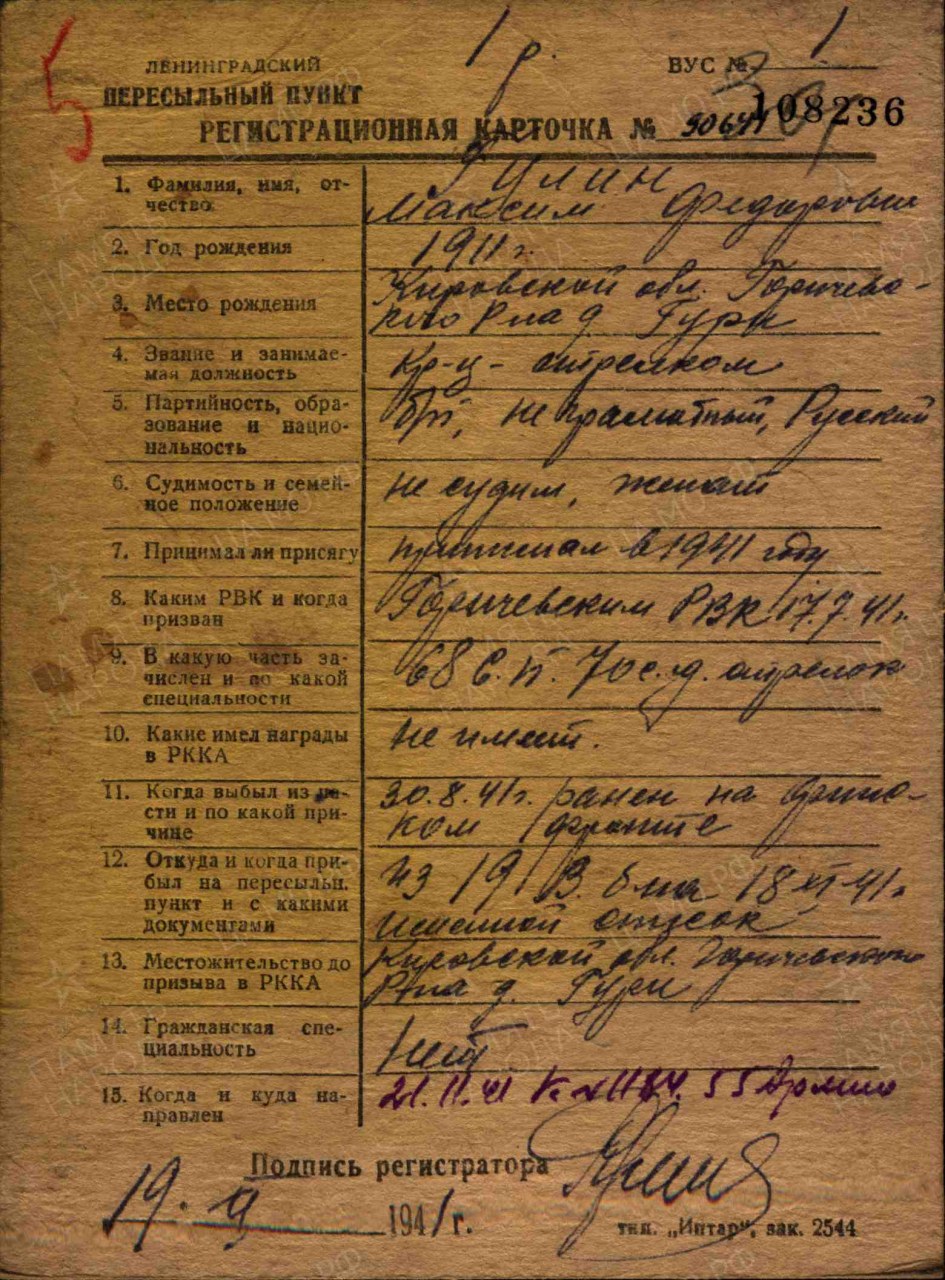 5
1 р.
ВУС № 1
ЛЕНИНГРАДСКИЙ
ПЕРЕСЫЛЬНЫЙ ПУНКТ
108236
РЕГИСТРАЦИОННАЯ КАРТОЧКА №
1. Фамилия, имя, от-
чество.
Гулин
Максим Федорович
2. Год рождения
1911 г.
3. Место рождения
Кировской обл. Торичев-
р-на д Гури
4. Звание и занимае-
мая должность
Кр-ц - стрелком
5. Партийность, обра-
зование и нацио-
нальность
б/п, не граматный, Русский
6. Судимость и семей-
ное положение
не судим, женат
7. Принимал ли присягу
принимал в 1941 году
8. Каким РВК и когда
призван
Торичевским РВК 17.7.41г.
9. В какую часть за-
числен и по какой
специальности
68 с.п. 70 с.д. стрелок
10. Какие имел награды
в РККА
не имеет.
11. Когда выбыл из ча-
сти и по какой при-
чине
30.8.41г. ранен на финс-
ком фронте
12. Откуда и когда при-
был на пересыльн.
пункт и с какими
документами
Из 19 В. б-на 18 XI 41г
именной список
13. Местожительство до
призыва в РККА
Кировской обл. Торичевского
Р-на д. Гури
14. Гражданская спе-
циальность
Нет
15. Когда и куда на-
правлен
21.11.41 55 Армию
Подпись регистратора
19. XI 1941 г.
тип. „Интар", зак. 2544